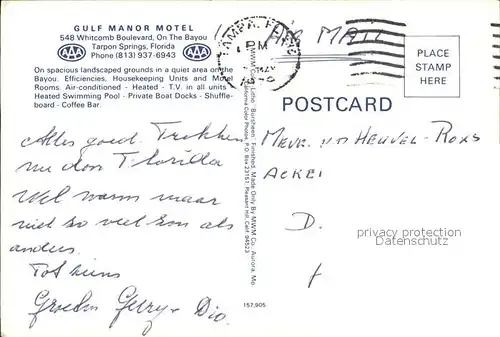 GULF MANOR MOTEL
548 Whitcomb Boulevard, On The Bayou
Tarpon Springs, Florida
Phone (813) 937-6943
AAA
AAA
On spacious landscaped grounds in a quiet area on the
Bayou. Efficiencies, Housekeeping Units and Motel
Rooms. Air-conditioned - Heated - T.V. in all units
Heated Swimming Pool - Private Boat Docks - Shuffle-
board - Coffee Bar.
Alles goed. Trekken
nu door Florida
Wel warm maar
niet zo veel zon als
anders.
Tot ziens
Groeten Gerry + Dio
TAMPA, FL
PM
AIR MAIL
PLACE
STAMP
HERE
POSTCARD
Mevr. v/d Heuvel-Roxs
D.
privacy protection
Datenschutz
Finished. Made Only By MWM Co. Aurora, Mo
California Color Photos, P.O. Box 23151, Pleasant Hill, Calif. 94523
157,905